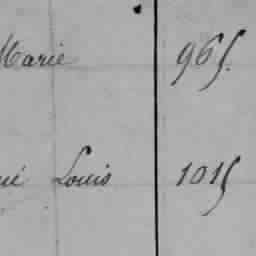 Marie 965.
ué Louis 1015